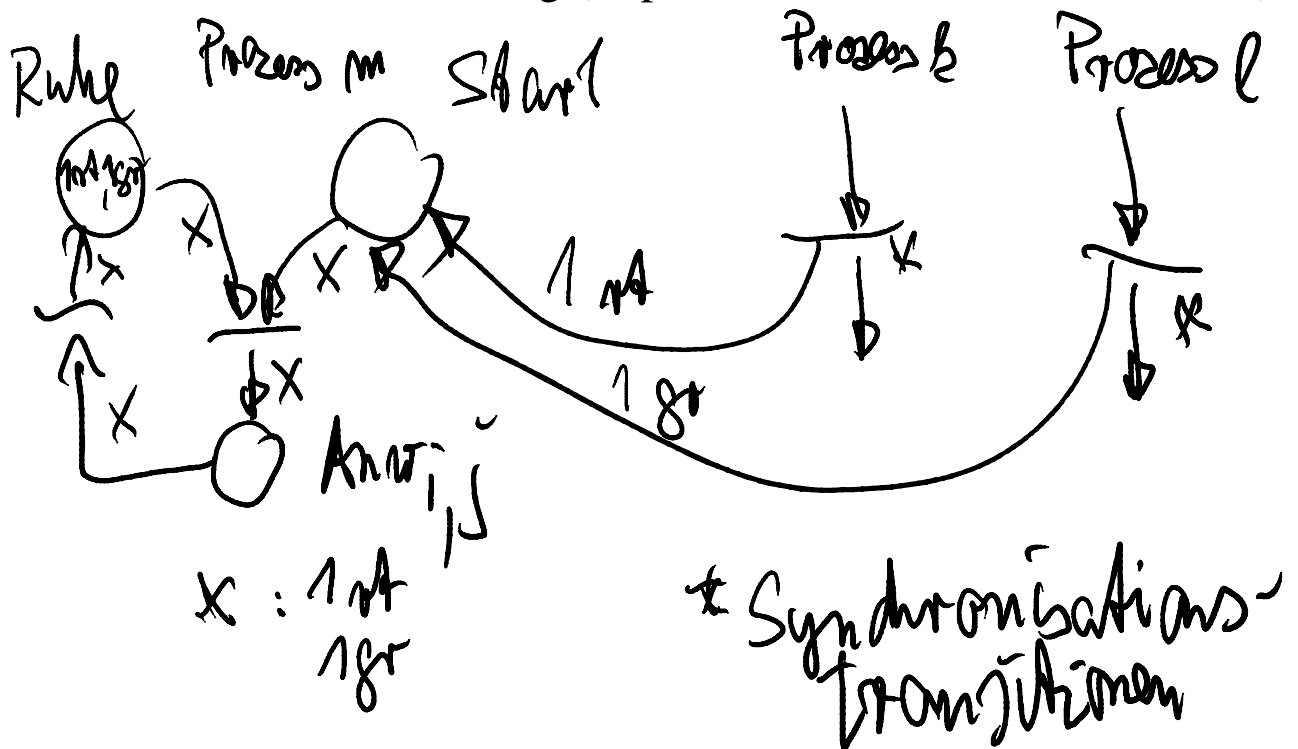 Ruhe Prozess m Start Prozess k Prozess l
1rt, 1gr
x
x
x
x
x
x
1 rt
1 gr
*
*
Anw i, j
x : 1 rt
1gr
* Synchronisations-
transitionen